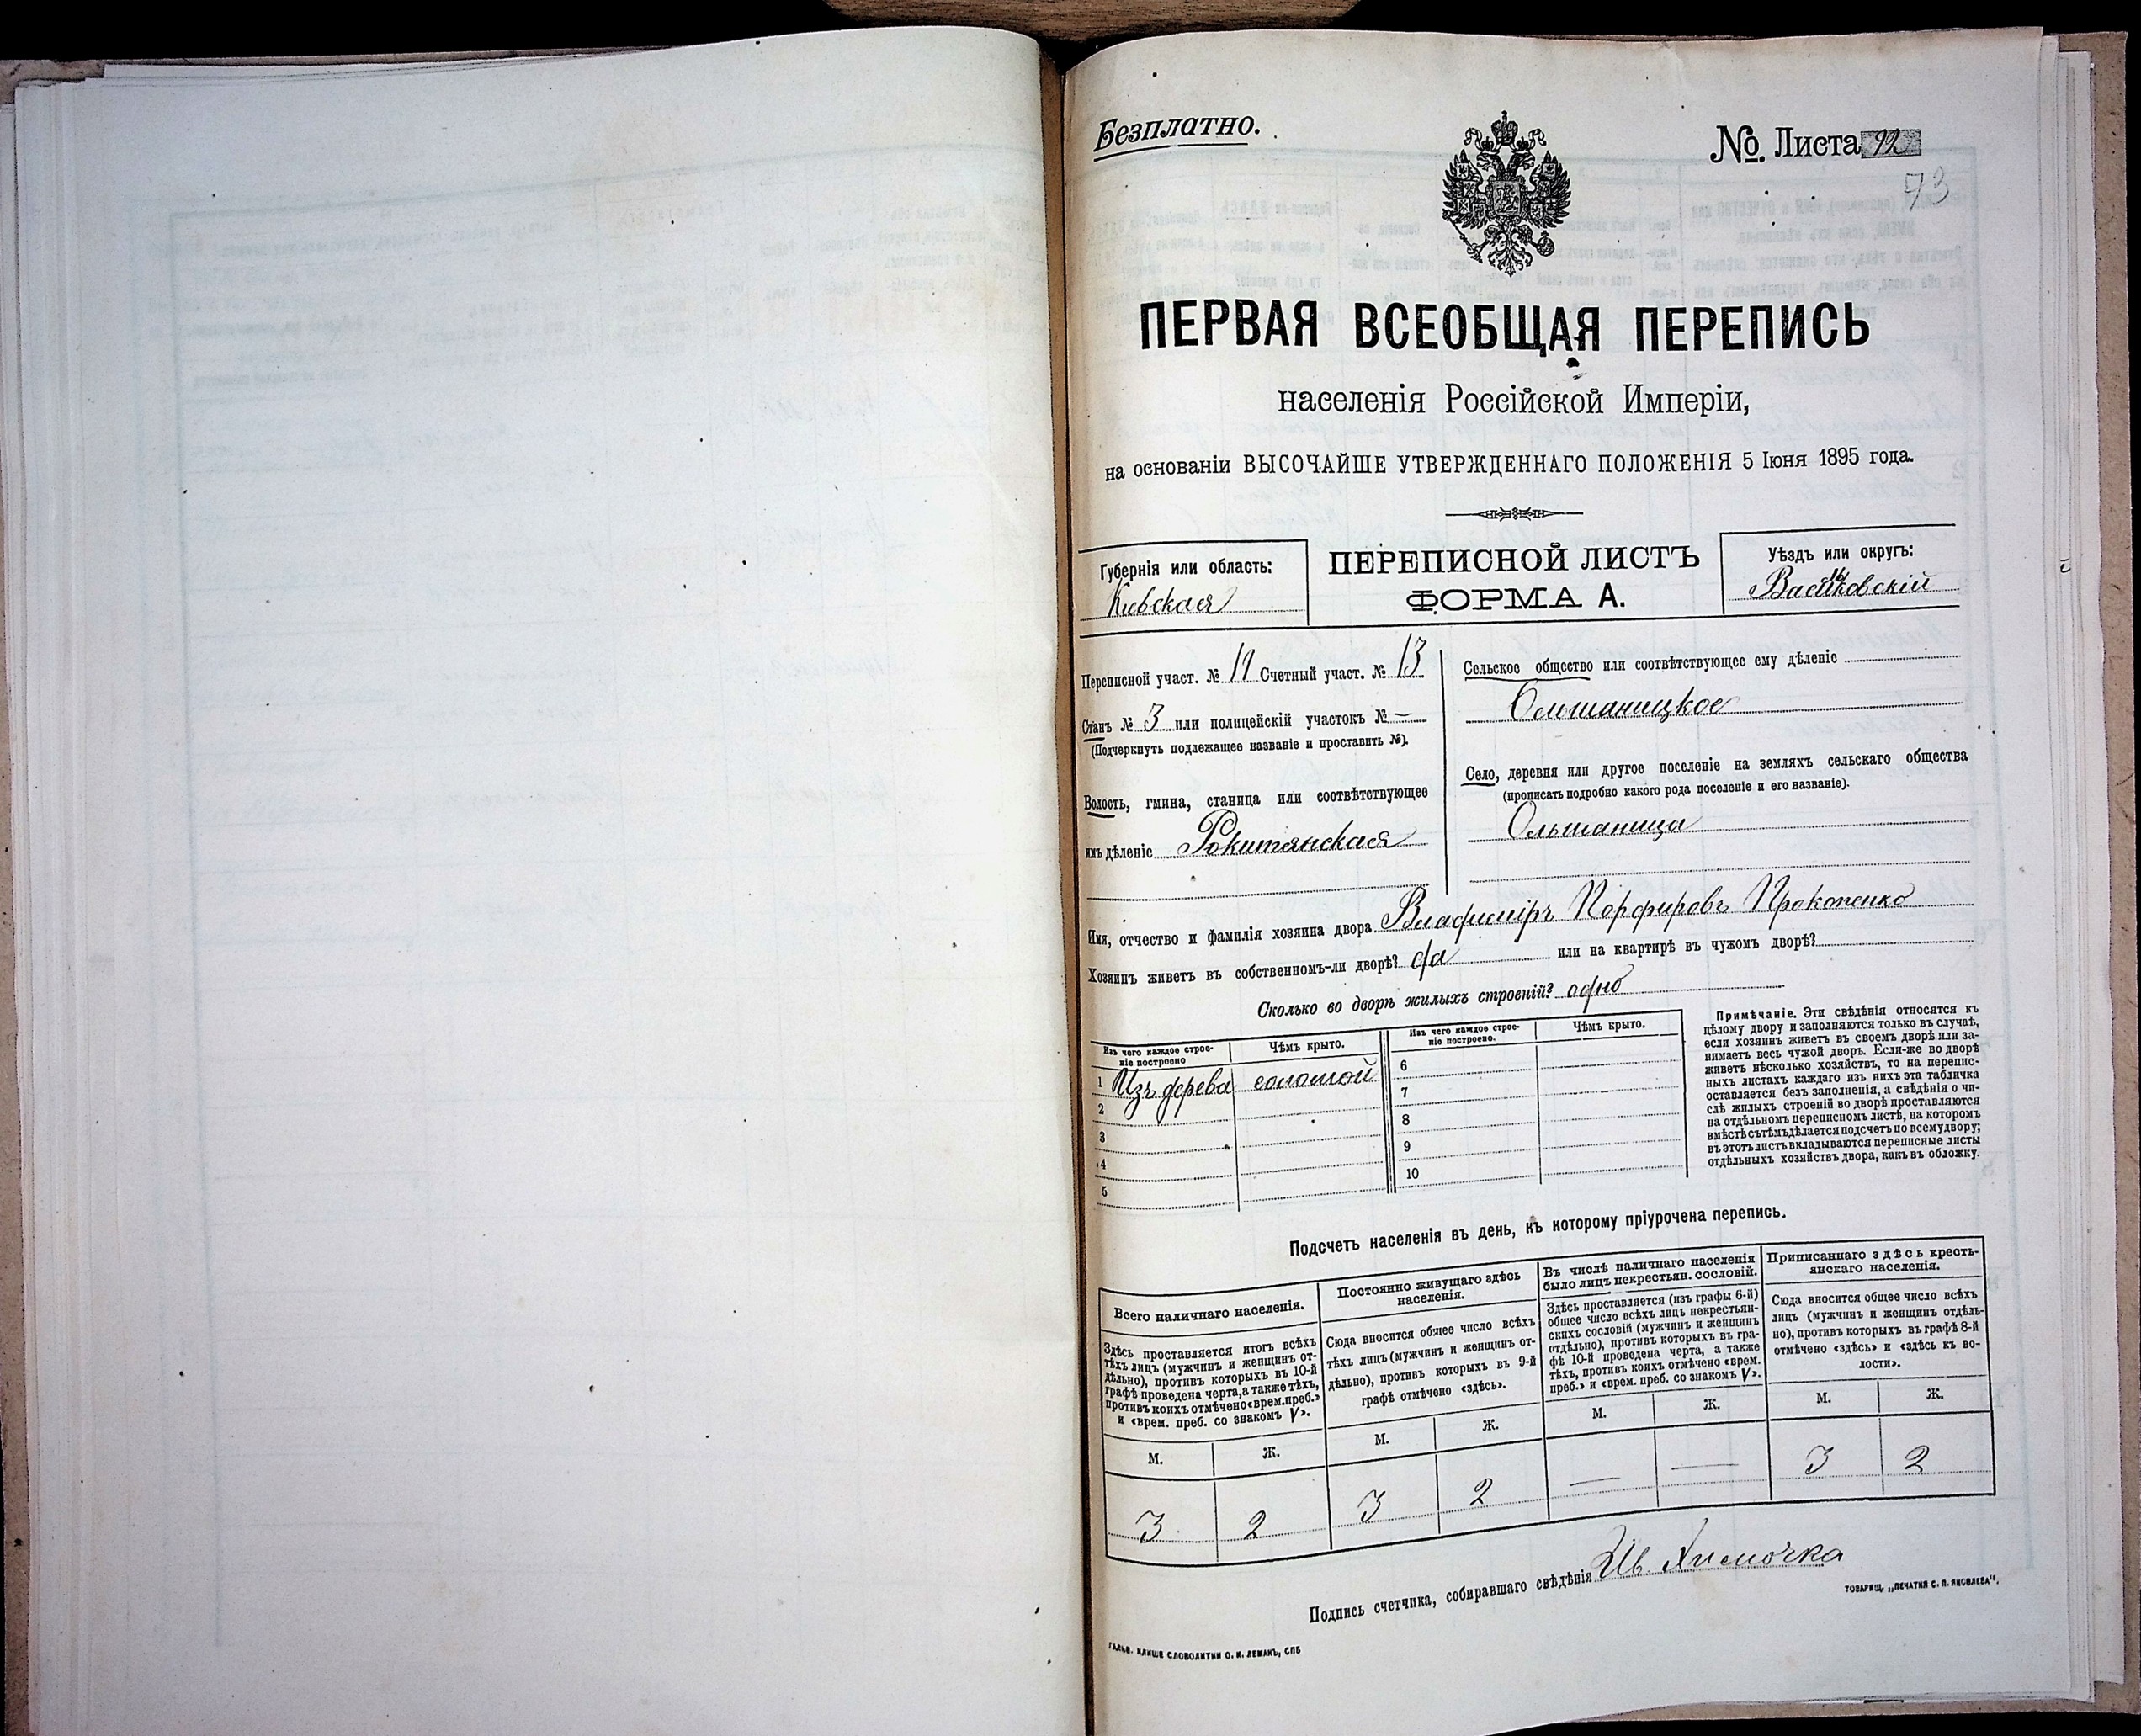 Безплатно.
№ Листа 92
73
ПЕРВАЯ ВСЕОБЩАЯ ПЕРЕПИСЬ
населенія Россійской Имперіи,
на основаніи ВЫСОЧАЙШЕ УТВЕРЖДЕННАГО ПОЛОЖЕНІЯ 5 Іюня 1895 года.
Губернія или область:
Кіевская
ПЕРЕПИСНОЙ ЛИСТЪ
ФОРМА А.
Уѣздъ или округъ:
Васильковскій
Переписной участ. № 11 Счетный участ. № 13
Станъ № 3 или полицейскій участокъ № —
(Подчеркнуть подлежащее названіе и проставить №).
Волость, гмина, станица или соотвѣтствующее
имъ дѣленіе Рокитянская
Сельское общество или соотвѣтствующее ему дѣленіе
Ольшаницкое
Село, деревня или другое поселеніе на земляхъ сельскаго общества
(прописать подробно какого рода поселеніе и его названіе).
Ольшаница
Имя, отчество и фамилія хозяина двора Владиміръ Порфировъ Прокопенко
Хозяинъ живетъ въ собственномъ-ли дворѣ? да или на квартирѣ въ чужомъ дворѣ?
Сколько во дворѣ жилыхъ строеній? одно
Изъ чего каждое строе-
ніе построено
Чѣмъ крыто.
Изъ чего каждое строе-
ніе построено.
Чѣмъ крыто.
1 Изъ дерева соломой
2
3
4
5
6
7
8
9
10
Примѣчаніе. Эти свѣдѣнія относятся къ
цѣлому двору и заполняются только въ случаѣ,
если хозяинъ живетъ въ своемъ дворѣ или за-
нимаетъ весь чужой дворъ. Если-же во дворѣ
живетъ нѣсколько хозяйствъ, то на перепис-
ныхъ листахъ каждаго изъ нихъ эта табличка
оставляется безъ заполненія, а свѣдѣнія о чи-
слѣ жилыхъ строеній во дворѣ проставляются
на отдѣльномъ переписномъ листѣ, на которомъ
вмѣстѣ съ тѣмъ дѣлается подсчетъ по всему двору;
въ этотъ листъ вкладываются переписные листы
отдѣльныхъ хозяйствъ двора, какъ въ обложку.
Подсчетъ населенія въ день, къ которому пріурочена перепись.
Всего наличнаго населенія.
Здѣсь проставляется итогъ всѣхъ
тѣхъ лицъ (мужчинъ и женщинъ от-
дѣльно), противъ которыхъ въ 10-й
графѣ проведена черта, а также тѣхъ,
противъ коихъ отмѣчено «врем. преб.»
и «врем. преб. со знакомъ V».
М. Ж.
3 2
Постоянно живущаго здѣсь
населенія.
Сюда вносится общее число всѣхъ
тѣхъ лицъ (мужчинъ и женщинъ от-
дѣльно), противъ которыхъ въ 9-й
графѣ отмѣчено «здѣсь».
М. Ж.
3 2
Въ числѣ наличнаго населенія
было лицъ некрестьян. сословій.
Здѣсь проставляется (изъ графы 6-й)
общее число всѣхъ лицъ некрестьян-
скихъ сословій (мужчинъ и женщинъ
отдѣльно), противъ которыхъ въ гра-
фѣ 10-й проведена черта, а также
тѣхъ, противъ коихъ отмѣчено «врем.
преб.» и «врем. преб. со знакомъ V».
М. Ж.
— —
Приписаннаго здѣсь кресть-
янскаго населенія.
Сюда вносится общее число всѣхъ
лицъ (мужчинъ и женщинъ отдѣль-
но), противъ которыхъ въ графѣ 8-й
отмѣчено «здѣсь» и «здѣсь къ во-
лости».
М. Ж.
3 2
Подпись счетчика, собиравшаго свѣдѣнія Ив. Химочка
ТОВАРИЩ. „ПЕЧАТНЯ С. П. ЯКОВЛЕВА“.
ГАЛЬВ. КЛИШЕ СЛОВОЛИТНИ О. И. ЛЕМАНЪ, СПБ